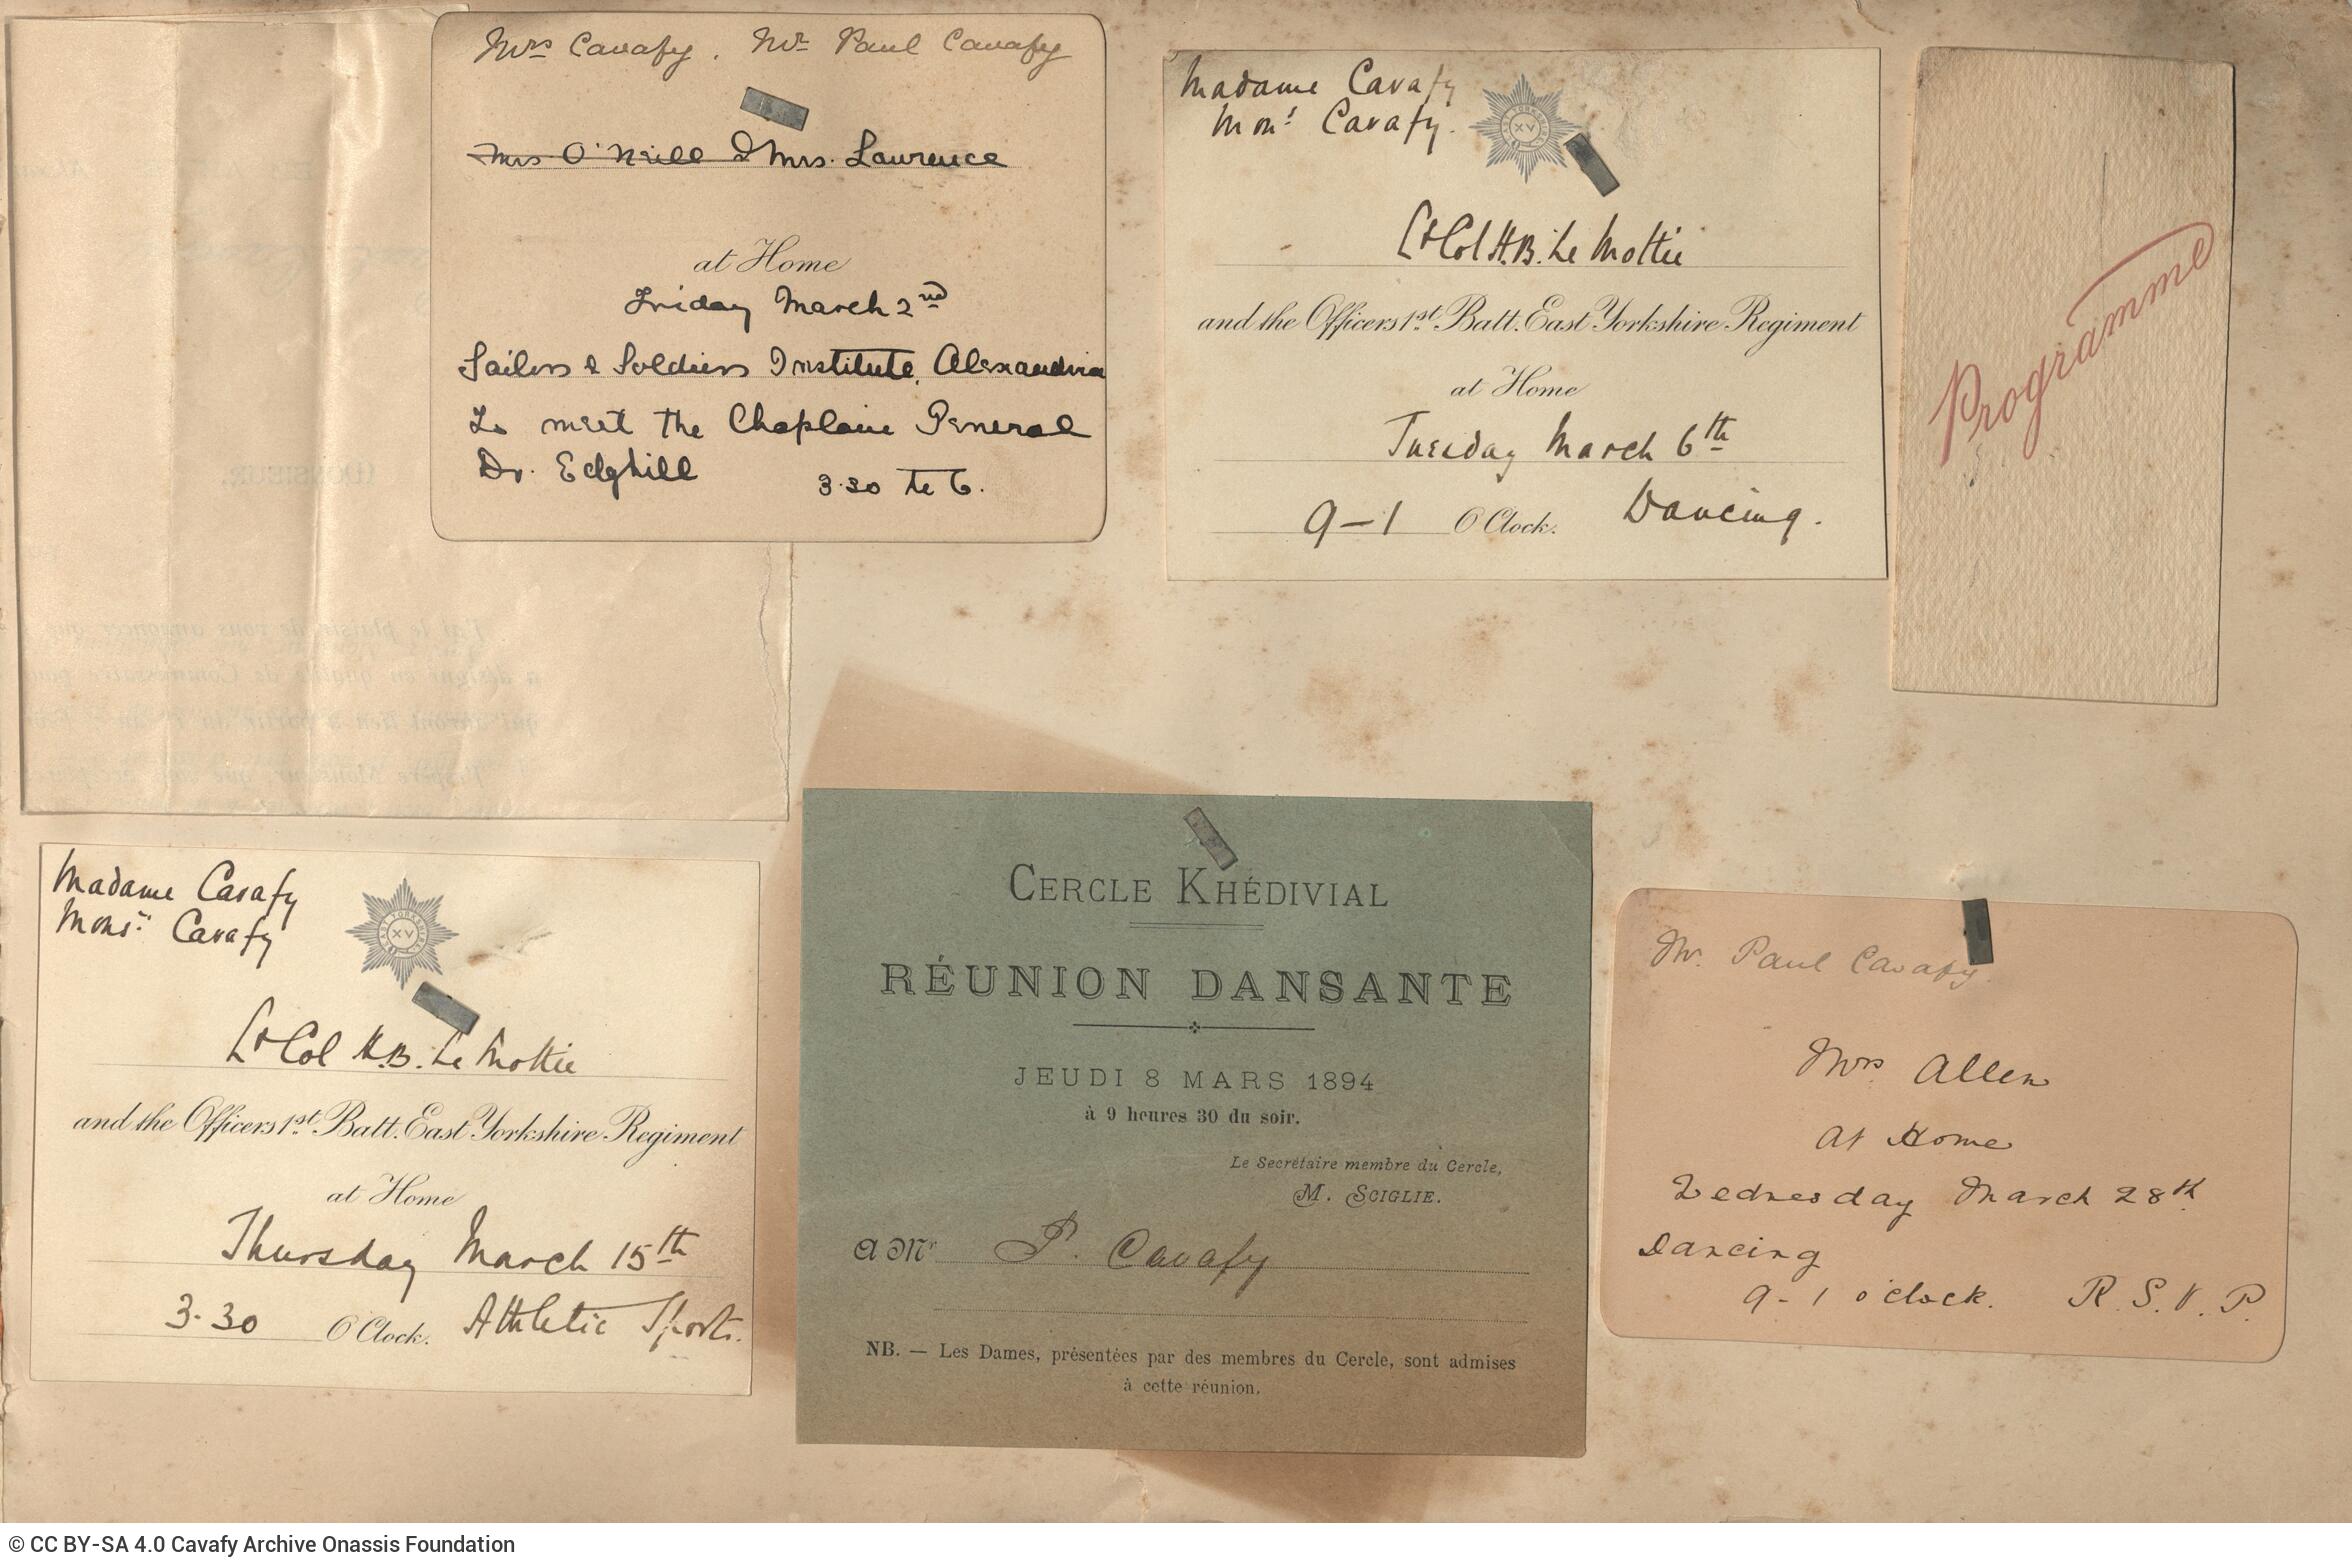 Mrs Cavafy. Mr Paul Cavafy
Mrs O'Neill & Mrs. Lawrence
at Home
Friday March 2nd
Sailors & Soldiers Institute, Alexandria
To meet the Chaplain General
Dr. Edghill 3.30 to 6.
Madame Cavafy
Monsr Cavafy.
EAST YORKSHIRE
XV
Lt Col H.B. Le Mottée
and the Officers 1st Batt. East Yorkshire Regiment
at Home
Tuesday March 6th
9–1 O'Clock. Dancing.
Programme
MONSIEUR,
J'ai le plaisir de vous annoncer que
a désigné en qualité de Commissaire pour
qui auront lieu à partir du
J'espère Monsieur, que
Madame Cavafy
Monsr Cavafy
EAST YORKSHIRE
XV
Lt Col H.B. Le Mottée
and the Officers 1st Batt. East Yorkshire Regiment
at Home
Thursday March 15th
3.30 O'Clock. Athletic Sports.
CERCLE KHÉDIVIAL
RÉUNION DANSANTE
JEUDI 8 MARS 1894
à 9 heures 30 du soir.
Le Secrétaire membre du Cercle,
M. SCIGLIE.
A Mr P. Cavafy
NB. — Les Dames, présentées par des membres du Cercle, sont admises
à cette réunion.
Mr. Paul Cavafy.
Mrs Allen
At Home
Wednesday March 28th
Dancing
9-1 o'clock. R.S.V.P.
© CC BY-SA 4.0 Cavafy Archive Onassis Foundation